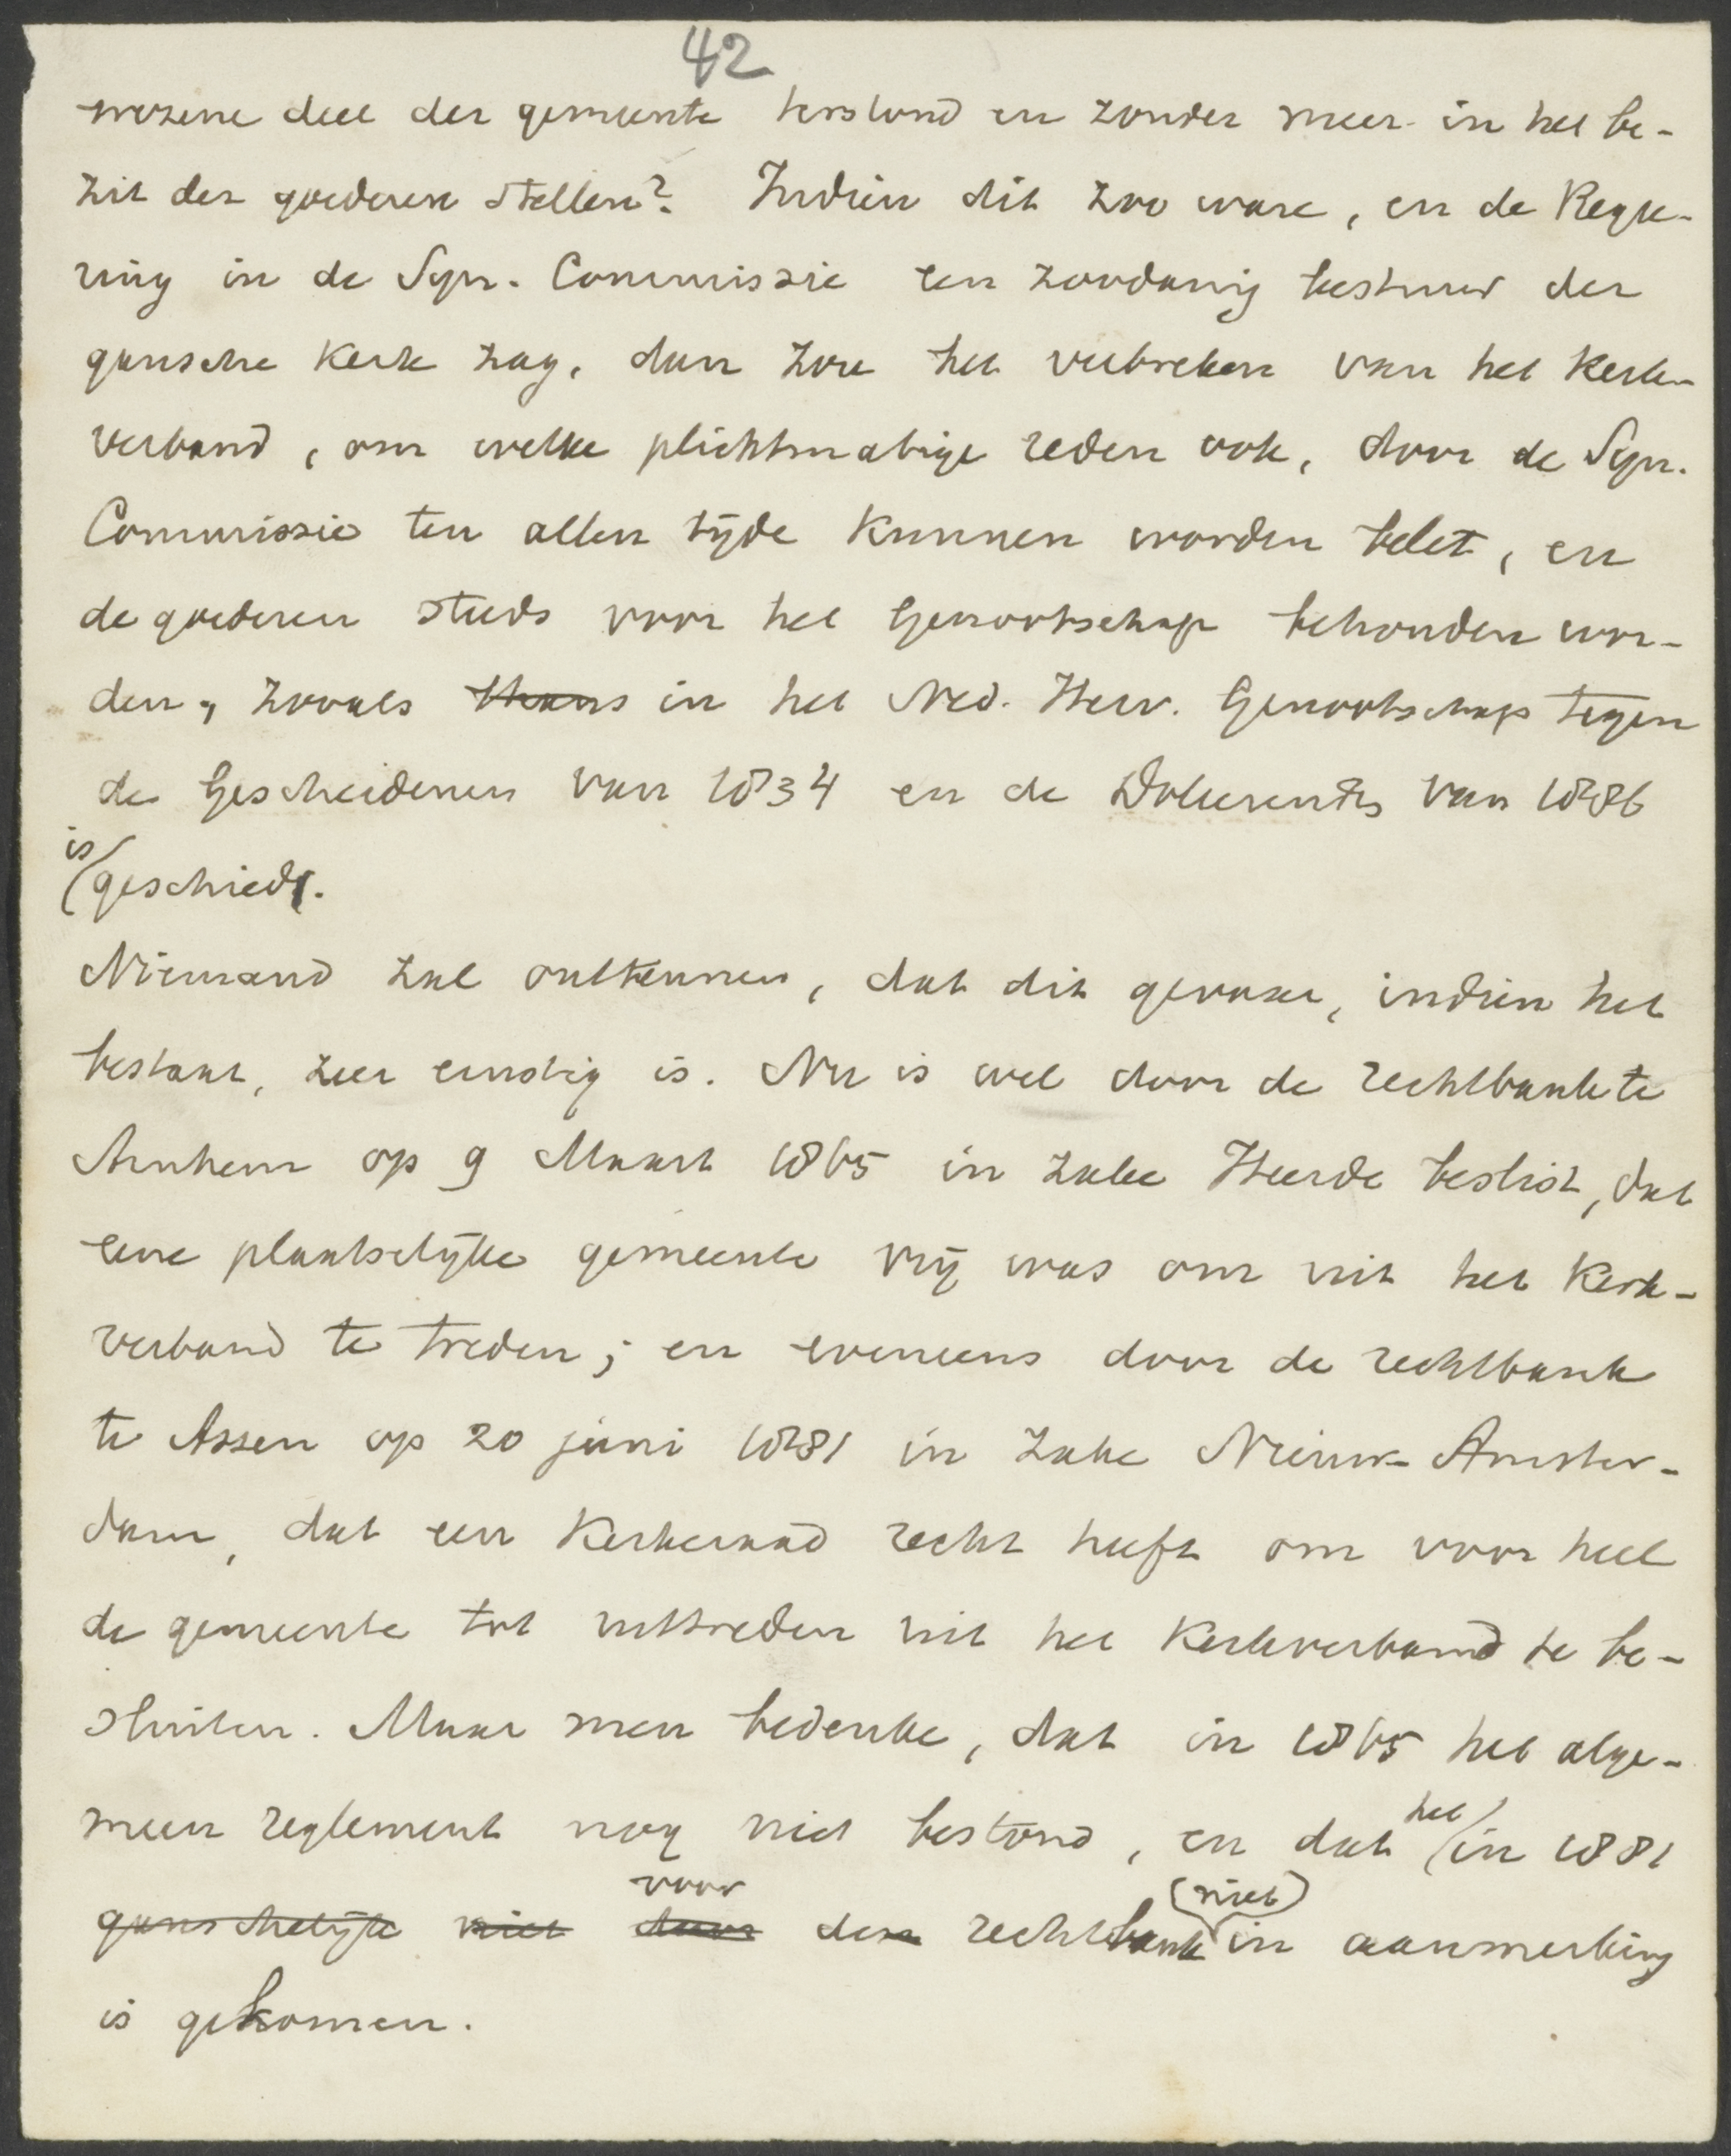 42
wezene deel der gemeente terstond en zonder meer in het be-
zit der goederen stellen? Indien dit zoo ware, en de Rege-
ring in de Syn. Commissie een zoodanig bestuur der
gansche Kerk zag, dan zou het verbreken van het Kerk-
verband, om welke plichtmatige reden ook, door de Syn.
Commissie ten allen tijde kunnen worden belet, en
de goederen steeds voor het Genootschap behouden wor-
den, zooals thans in het Ned. Herv. Genootschap tegen
de Gescheidenen van 1834 en de Doleerenden van 1886
is
geschied.
Niemand zal ontkennen, dat dit gevaar, indien het
bestaat, zeer ernstig is. Nu is wel door de rechtbank te
Arnhem op 9 Maart 1865 in zake Heerde beslist, dat
eene plaatselijke gemeente vrij was om uit het Kerk-
verband te treden; en eveneens door de rechtbank
te Assen op 20 juni 1881 in zake Nieuw-Amster-
dam, dat een Kerkeraad recht heeft om voor heel
de gemeente tot uittreden uit het Kerkverband te be-
sluiten. Maar men bedenke, dat in 1865 het alge-
meen reglement nog niet bestond, en dat het in 1881
ganschelijk niet door voor den rechtbank niet in aanmerking
is gekomen.